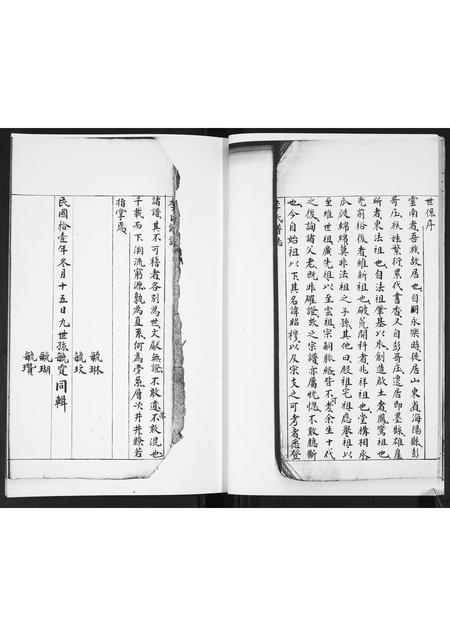 世係序
雲南者吾族故居也自明永樂時徙居山東省海陽縣彭
哥庄族姓繁衍累代書香又自彭哥庄遷居即墨縣雄崖
所者東法祖也自法祖肇基以來創造啟土者鳳鸞祖也
光前裕後者維新祖也破荒開科者兆祥祖也堂構相承
瓜瓞綿綿莫非法祖之子孫其他曰殷祖宅祖應舉祖以
至維世祖廣先祖以至雲祖宗嗣脈絡皆不可考余生十代
之後詢諸父老既非確證攷之宗譜亦屬恍惚不敢臆斷
也今自始祖以下其名諱昭穆以及宗支之可考者悉登
李氏譜誌
諸譜其不可稽者各別為世文獻無證不敢遺亦不敢混也
千載而下溯流窮源孰為直系何為旁系層次井井瞭若
指掌焉
民國拾壹年冬月十五日九世孫毓霞同輯
毓琳
毓玟
毓瑚
毓瓚